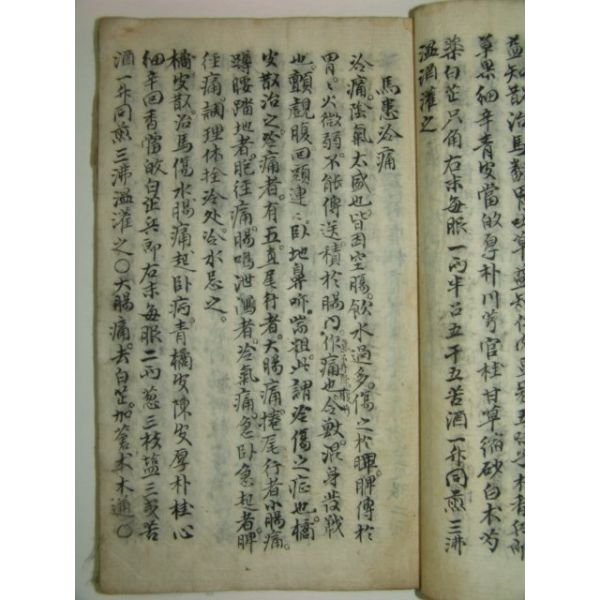 益知散治馬
草果細辛青皮當的厚朴川芎官桂甘草縮砂白木芍
藥白芷只角右末每服一兩半呂五干五苦酒一升同煎三沸
溫酒灌之
馬患冷痛
冷痛。陰氣太盛也皆因空腸。飲水過多。傷之於脾。脾傳於
胃。胃火微弱。不能傳送。積於腸內。作痛也令獸。渾身發戰
也。顫觀腹回頭連連臥地鼻咋喘粗。此謂冷傷之症也。橘
皮散治之。冷痛者。有五。直尾行者。大腸痛。捲尾行者小腸痛。
蹲腰踏地者。胞往痛。腸鳴泄瀉者。冷氣痛。急臥急起者。脾
往痛調理休拴冷處。冷水忌之。
橘皮散治馬傷水腸痛起臥病。青橘皮陳皮厚朴桂心
細辛回香當的白芷兵郎右末每服二兩葱三枝塩三戔苦
酒一升同煎三沸溫灌之〇大腸痛。去白芷。加蒼木木通〇